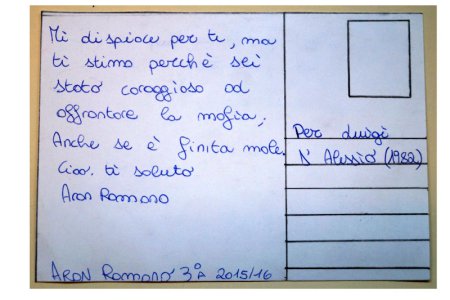 Mi dispiace per te, ma
ti stimo perchè sei
stato coraggioso ad
affrontare la mafia,
Anche se è finita male.
Ciao. ti saluto
Aron Romano
Per Luigi
D' Alessio (1982)
ARON Romano 3°A 2015/16